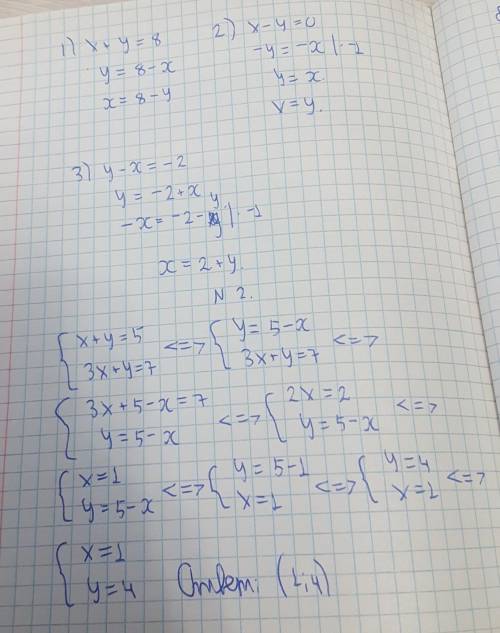 1) x + y = 8
y = 8 - x
x = 8 - y
2) x - y = 0
-y = -x | · -1
y = x.
x = y.
3) y - x = -2
y = -2 + x
-x = -2 - y | · -1
x = 2 + y.
N 2.
{ x + y = 5 <=> { y = 5 - x <=>
{ 3x + y = 7 { 3x + y = 7
{ 3x + 5 - x = 7 <=> { 2x = 2 <=>
{ y = 5 - x { y = 5 - x
{ x = 1 <=> { y = 5 - 1 <=> { y = 4 <=>
{ y = 5 - x { x = 1 { x = 1
{ x = 1
{ y = 4 Ответ: (1;4)